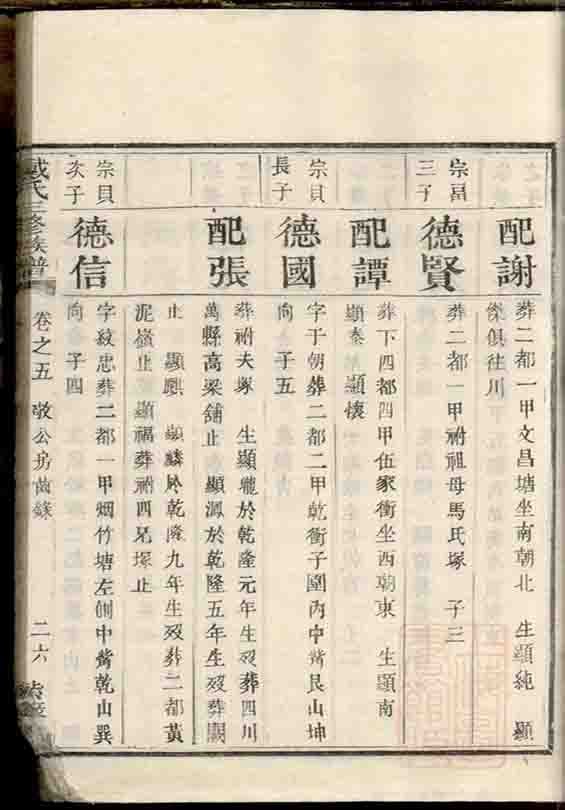 配謝
葬二都一甲文昌塘坐南朝北 生顯純 顯
傑俱往川
宗富
三子
德賢
葬二都一甲祔祖母馬氏塚 子三
配譚
葬下四都四甲伍家衝坐西朝東 生顯南
顯泰 顯懷
宗貝
長子
德國
字于朝葬二都二甲乾衝子圍丙中嘴艮山坤
向 子五
配張
葬祔夫塚 生顯瓏於乾隆元年生歿葬四川
萬縣高梁舖止 顯源於乾隆五年生歿葬關
止 顯麒 顯麟於乾隆九年生歿葬二都黃
泥嶺止 顯福葬祔四兄塚止
宗貝
次子
德信
字紋忠葬二都一甲烟竹塘左側中嘴乾山巽
向 子四
氏三修族譜
卷之五 敬公房齒錄
二六